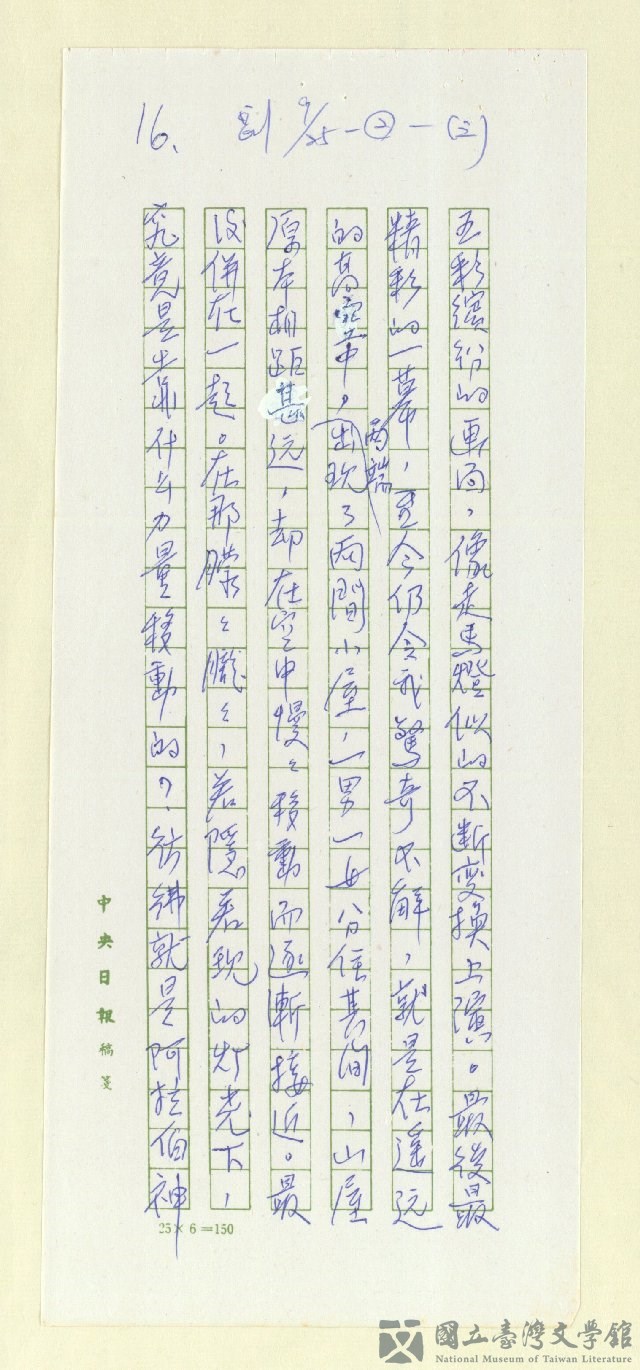 16. 副 9/25-②-(三)
五彩繽紛的画面,像走馬燈似的不断变換上演。最後最
精彩的一幕,至今仍令我驚奇不解,就是在遙远
的高空中,兩端出現了兩間小屋,一男一女分住其间,小屋
原本相距甚远,却在空中慢々移動而逐漸接近。最
後併在一起。在那朦々朧々,若隱若現的灯光下,
究竟是靠什么力量移動的?彷彿就是阿拉伯神
中央日報稿箋
25×6=150
國立臺灣文學館
National Museum of Taiwan Literature